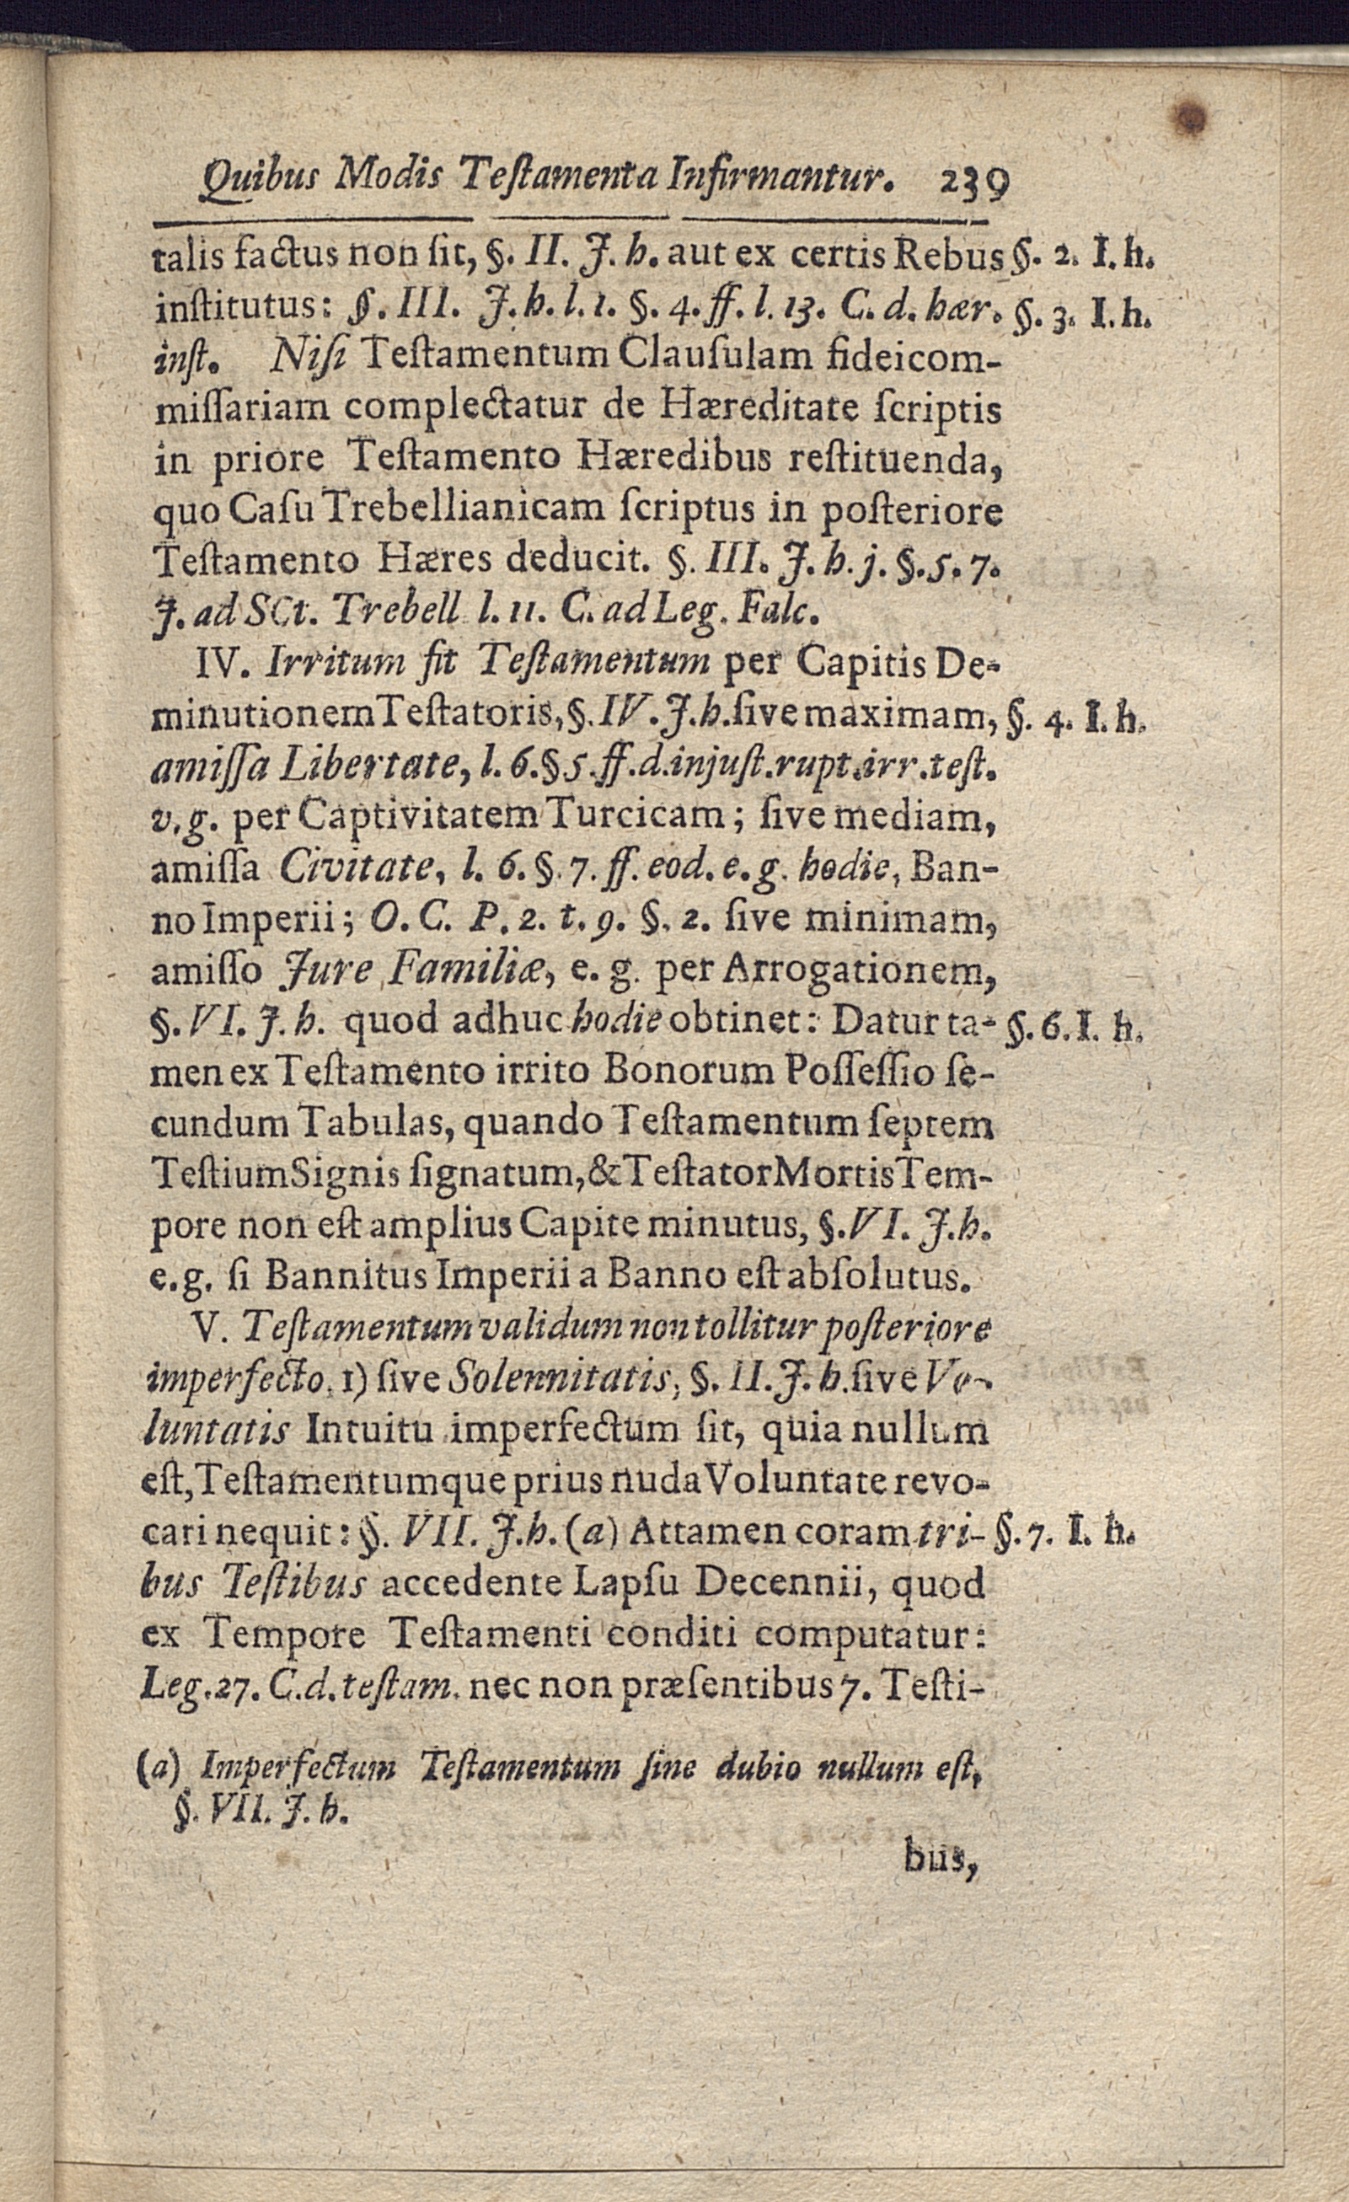 Quibus Modis Teſtamenta Infirmantur. 239
talis factus non ſit, §. II. J. h. aut ex certis Rebus §. 2. I. h.
inſtitutus: §. III. J. h. l. 1. §. 4. ff. l. 13. C. d. hær. §. 3. I. h.
inſt. Niſi Teſtamentum Clauſulam fideicom-
miſſariam complectatur de Hæreditate ſcriptis
in priore Teſtamento Hæredibus reſtituenda,
quo Caſu Trebellianicam ſcriptus in poſteriore
Teſtamento Hæres deducit. §. III. J. h. j. §. 5. 7.
J. ad SCt. Trebell l. 11. C. ad Leg. Falc.
IV. Irritum fit Teſtamentum per Capitis De-
minutionem Teſtatoris, §. IV. J. h. ſive maximam, §. 4. I. h.
amiſſa Libertate, l. 6. § 5. ff. d. injuſt. rupt. irr. teſt.
v. g. per Captivitatem Turcicam; ſive mediam,
amiſſa Civitate, l. 6. §. 7. ff. eod. e. g. hodie, Ban-
no Imperii; O. C. P. 2. t. 9. §. 2. ſive minimam,
amiſſo Jure Familiæ, e. g. per Arrogationem,
§. VI. J. h. quod adhuc hodie obtinet: Datur ta- §. 6. I. h.
men ex Teſtamento irrito Bonorum Poſſeſſio ſe-
cundum Tabulas, quando Teſtamentum ſeptem
Teſtium Signis ſignatum, & Teſtator Mortis Tem-
pore non eſt amplius Capite minutus, §. VI. J. h.
e. g. ſi Bannitus Imperii a Banno eſt abſolutus.
V. Teſtamentum validum non tollitur poſteriore
imperfecto. 1) ſive Solennitatis, §. II. J. h. ſive Vo-
luntatis Intuitu imperfectum ſit, quia nullum
eſt, Teſtamentumque prius nuda Voluntate revo-
cari nequit: §. VII. J. h. (a) Attamen coram tri- §. 7. I. h.
bus Teſtibus accedente Lapſu Decennii, quod
ex Tempore Teſtamenti conditi computatur:
Leg. 27. C. d. teſtam. nec non præſentibus 7. Teſti-
(a) Imperfectum Teſtamentum ſine dubio nullum eſt,
§. VII. J. h.
bus,